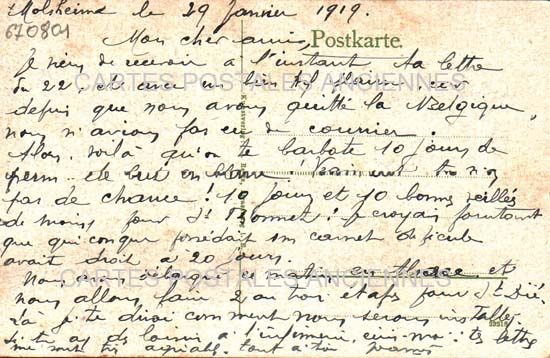 Molsheim le 29 Janvier 1919.
670801
Mon cher ami,
Postkarte.
Je viens de recevoir à l'instant ta lettre
du 22, et avec un bien plaisir, car
CARTES POSTALES ANCIENNES
depuis que nous avons quitté la Belgique,
nous n'avions pas eu de courrier.
Alors, voilà qu'on te barbote 10 jours de
perm. Vraiment tu n'as
pas de chance! 10 jours et 10 bonnes veillées
de moins pour St Bonnet! Je croyais pourtant
que quiconque possédait son carnet
avait droit à 20 jours.
CARTES POSTALES ANCIENNES
Nous avons ce matin en Alsace et
nous allons faire 2 ou trois étapes pour St Dié,
là je te dirai comment nous serons installés.
Si tu as des à l'infirmerie, écris-moi: tes lettres
me sont très agréables. tout à toi